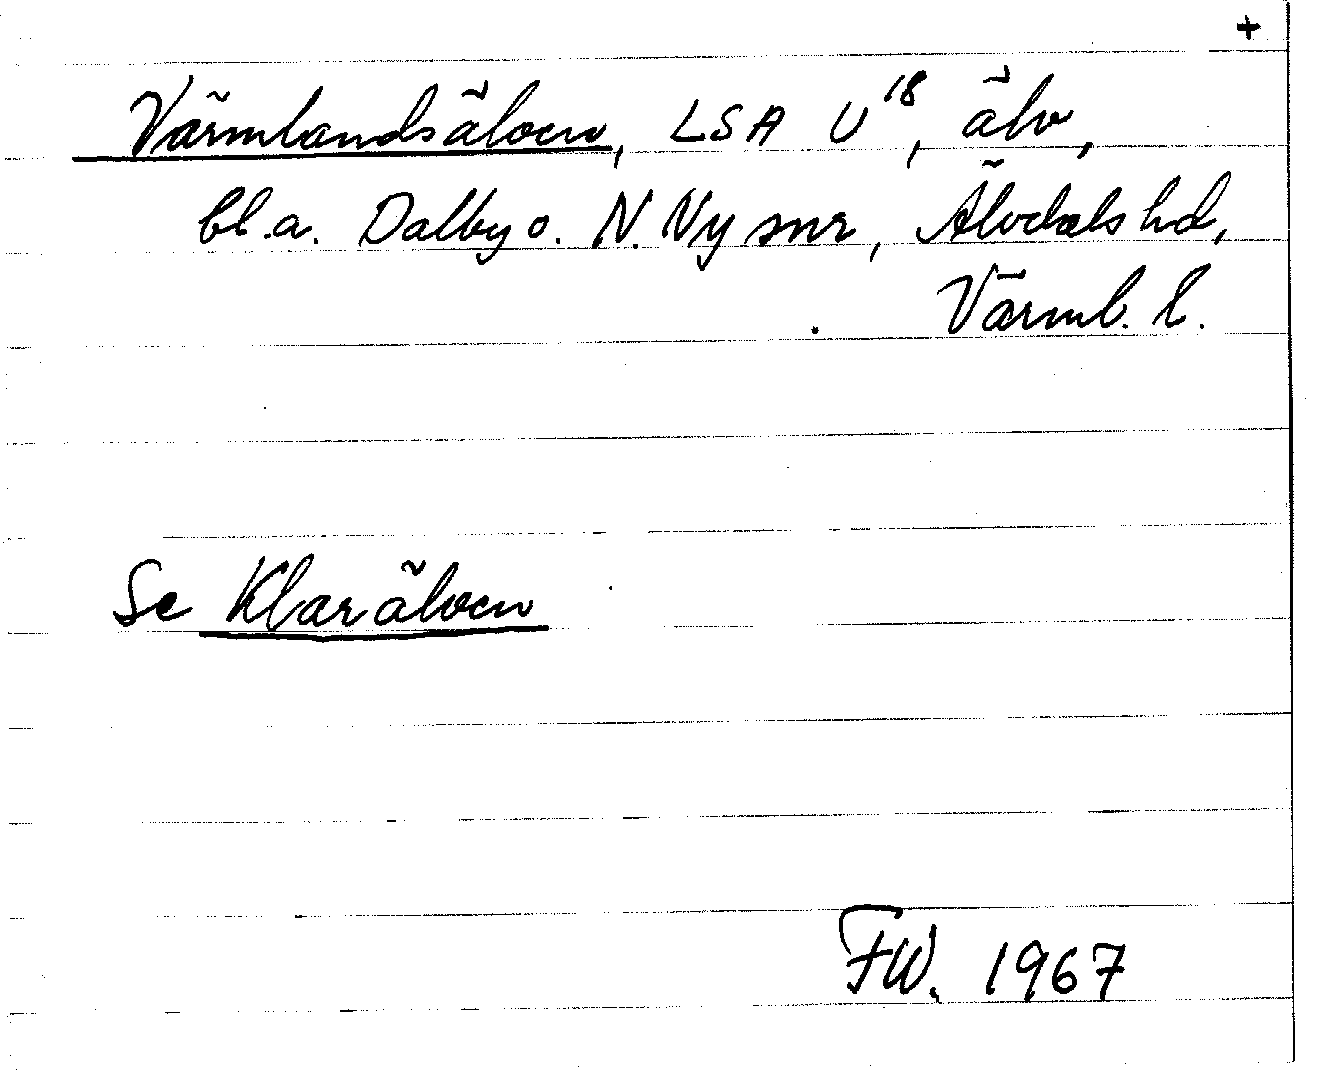 +
Värmlandsälven, LSA U¹⁸, älv,
bl.a. Dalby o. N. Ny snr, Älvdals hd,
Värml. l.
Se Klarälven
FW. 1967